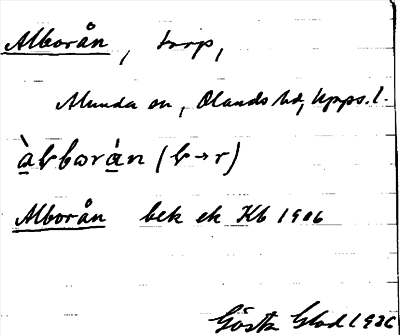 Alborån, torp,
Alunda sn, Olands hd, Upps. l.
àlborån (l→r)
Alborån bek ek Kb 1906
Gösta Glad 1936